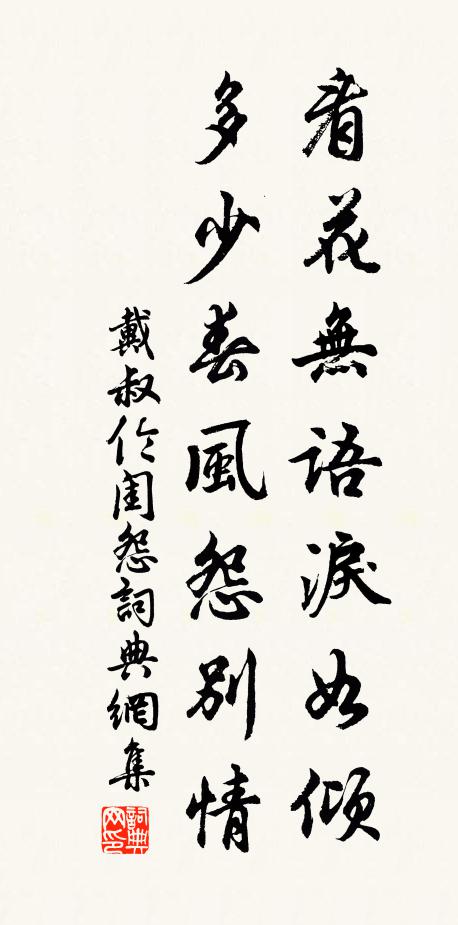 看花無語淚如傾
多少春風怨別情
戴叔伦闺怨詞典網集
詞典网印